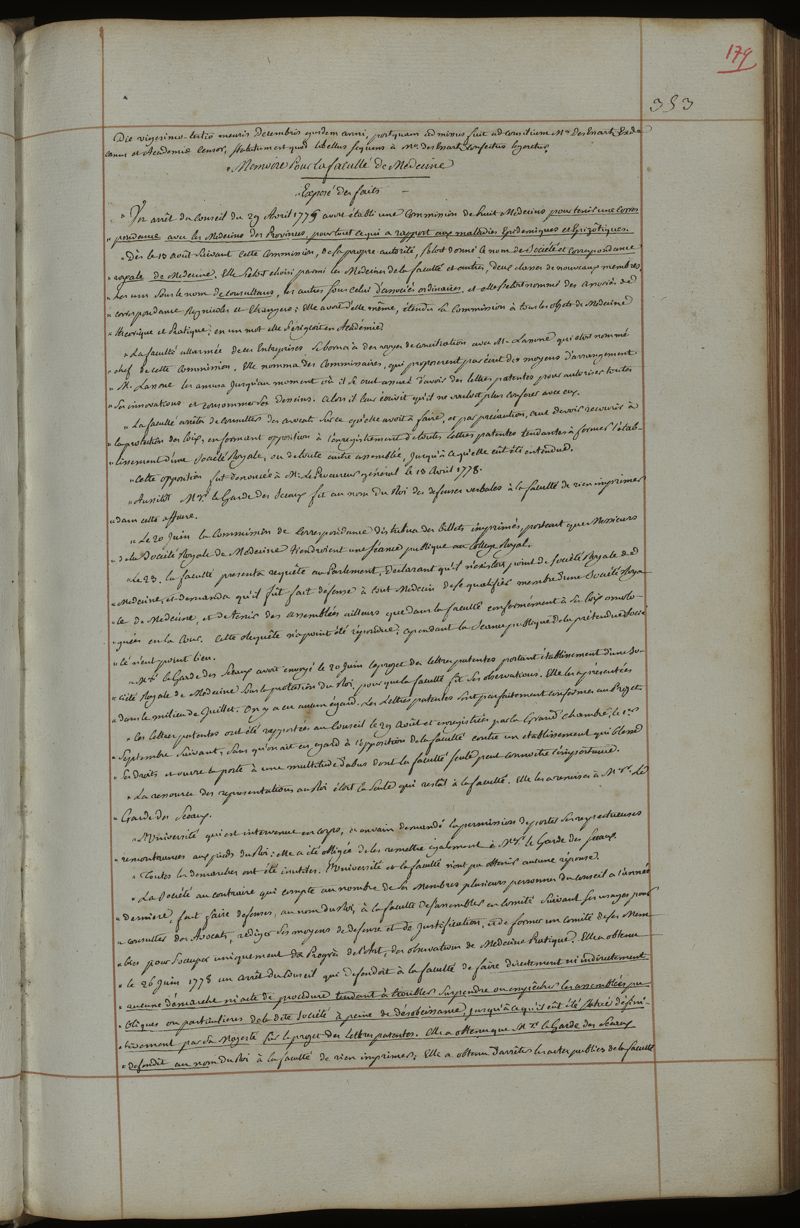 179
353
Die vigesimo-tertio mensis Decembris ejusdem anni, postquam admissus fuit ad consilium Mr. Des Essartz De
canus et Academiæ Censor, statutum est quod libellus sequens à Mro. des Essartz confectus legeretur.
"Memoire Pour la faculté de Medecine
"Exposé des faits
" Un arrêt du Conseil du 29 Avril 1776 avoit établi une Commission de huit Medecins pour tenir une Corres
" pondance avec les Medecins des Provinces, pour tout ce qui a rapport aux maladies Epidemiques et Epizotiques.
" Dès le 13 août suivant cette Commission, de sa propre autorité, s'étoit donné le nom de Société et correspondance
" royale de Medecine. Elle s'étoit choisi parmi les Medecins de la faculté et autres, deux classes de nouveaux membres,
" les uns sous le nom de consultans, les autres sous celui d'associés ordinaires, et elle s'étoit nommé des associés de
" correspondance Regnicoles et Etrangers; Elle avoit d'elle même, étendu la Commission à tous les objets de Medecine
" theorique et Pratique; en un mot elle s'érigeoit en Académie
" La faculté allarmée de ces Entreprises se borna à des voyes de conciliation avec M. Lassone qui étoit nommé
" chef de cette Commission. Elle nomma des Commissaires, qui proposerent par écrit des moyens d'arrangement.
" M. Lassone les amusa jusqu'au moment où il se crut assuré d'avoir des lettres patentes pour autoriser toutes
" ses innovations et consommer ses desseins. Alors il leur écrivit qu'il ne vouloit plus conferer avec eux.
" La faculté arrêta de consulter des avocats sur ce qu'elle avoit à faire, et par précaution, crut devoir recourir à
" la protection des loix, en formant opposition à l'enregistrement de toutes lettres patentes tendantes à former l'étab-
" lissement d'une Société Royale, ou de toute autre assemblée, jusqu'à ce qu'elle eût été entendue.
" Cette opposition fut denoncée à M. Le Procureur général le 13 Avril 1778.
" Aussitôt Mgr. le Garde des Sceaux fit au nom du Roi des defenses verbales à la faculté de rien imprimer
" dans cette affaire.
" Le 20 Juin la Commission de Correspondance distribua des billets imprimés, portant que Messieurs
" de la Société Royale de Medecine tiendroient une séance publique au College Royal.
" Le 23. la faculté presenta requête au Parlement, declarant qu'il n'existoit point de Société Royale de
" Medecine, et demanda qu'il fût fait defense à tout Medecin de se qualifier membre d'une Société Roya
" le de Medecine, et de tenir des assemblées ailleurs que dans la faculté conformément à la Loix omolo-
" guées en la Cour. Cette Requête n'a point été répondue; cependant la Seance publique de la prétendue Socié
" té n'eut point lieu.
" Mgr. le Garde des Sceaux avoit envoyé le 20 Juin le projet des lettres patentes portant établissement d'une So-
" ciété Royale de Medecine sous la protection du Roi, pour que la faculté fit ses observations. Elle les a présentées
" dans le milieu de Juillet. On n'y a eu aucun égard. Les Lettres patentes sont parfaitement conformes au Projet.
" Ces lettres patentes ont été rapportées au Conseil le 29 Août et enregistrées par la Grand' Chambre, le 1er
" Septembre suivant, sans qu'on ait eu egard à l'opposition de la faculté contre un etablissement qui blesse
" ses droits et ouvre la porte à une multitude d'abus dont la faculté seule peut connoître l'importance.
" La ressource des representations au Roi étoit la seule qui restât à la faculté. Elle les a remises à Mgr. Le
" Garde des Sceaux.
" L'Université qui est intervenue en corps, a en vain demandé la permission de porter ses respectueuses
" remontrances aux pieds du Roi; elle a été obligée de les remettre également à Mgr. le Garde des Sceaux
" Toutes les demarches ont été inutiles. L'Université et la faculté n'ont pu obtenir aucune réponse.
" La Société au contraire qui compte au nombre de ses Membres plusieurs personnes du conseil a l'année
" derniere, fait faire defenses, au nom du Roi, à la faculté de s'assembler en Comité suivant ses usages pour
" consulter des Avocats, rediger ses moyens de defense et de justification, et de former un Comité de ses Mem
" bres pour s'occuper uniquement des Progrès de l'Art, des observations de Medecine Pratique. Elle a obtenu
" le 26 Juin 1778 un arrêt du Conseil qui defendoit à la faculté de faire directement ni indirectement
" aucune démarche ni acte de procedure tendant à troubler surprendre ou empêcher les assemblées pu
" bliques ou particulieres de la dite Société à peine de désobeissance, jusqu'à ce qu'il eût été statué défini-
" tivement par sa Majesté sur le projet des lettres patentes. Elle a obtenu que Mgr. le Garde des Sceaux
" defendit au nom du Roi à la faculté de rien imprimer; Elle a obtenu d'arrêter les actes publics de la faculté